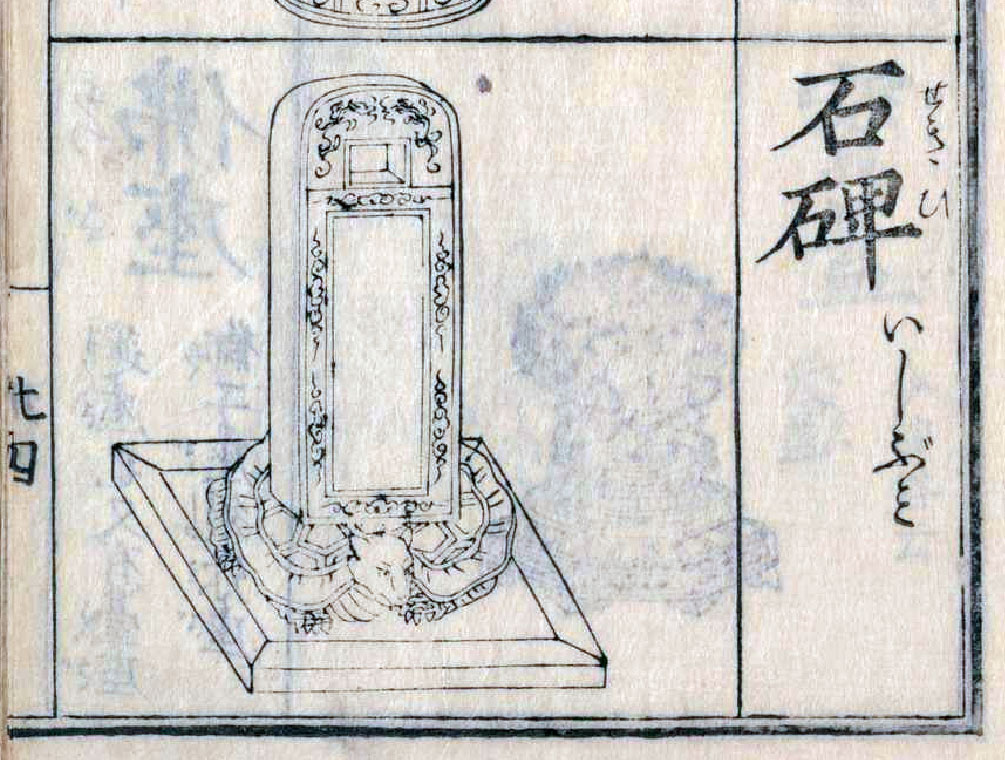 石碑
せきひ
いしぶミ
七四